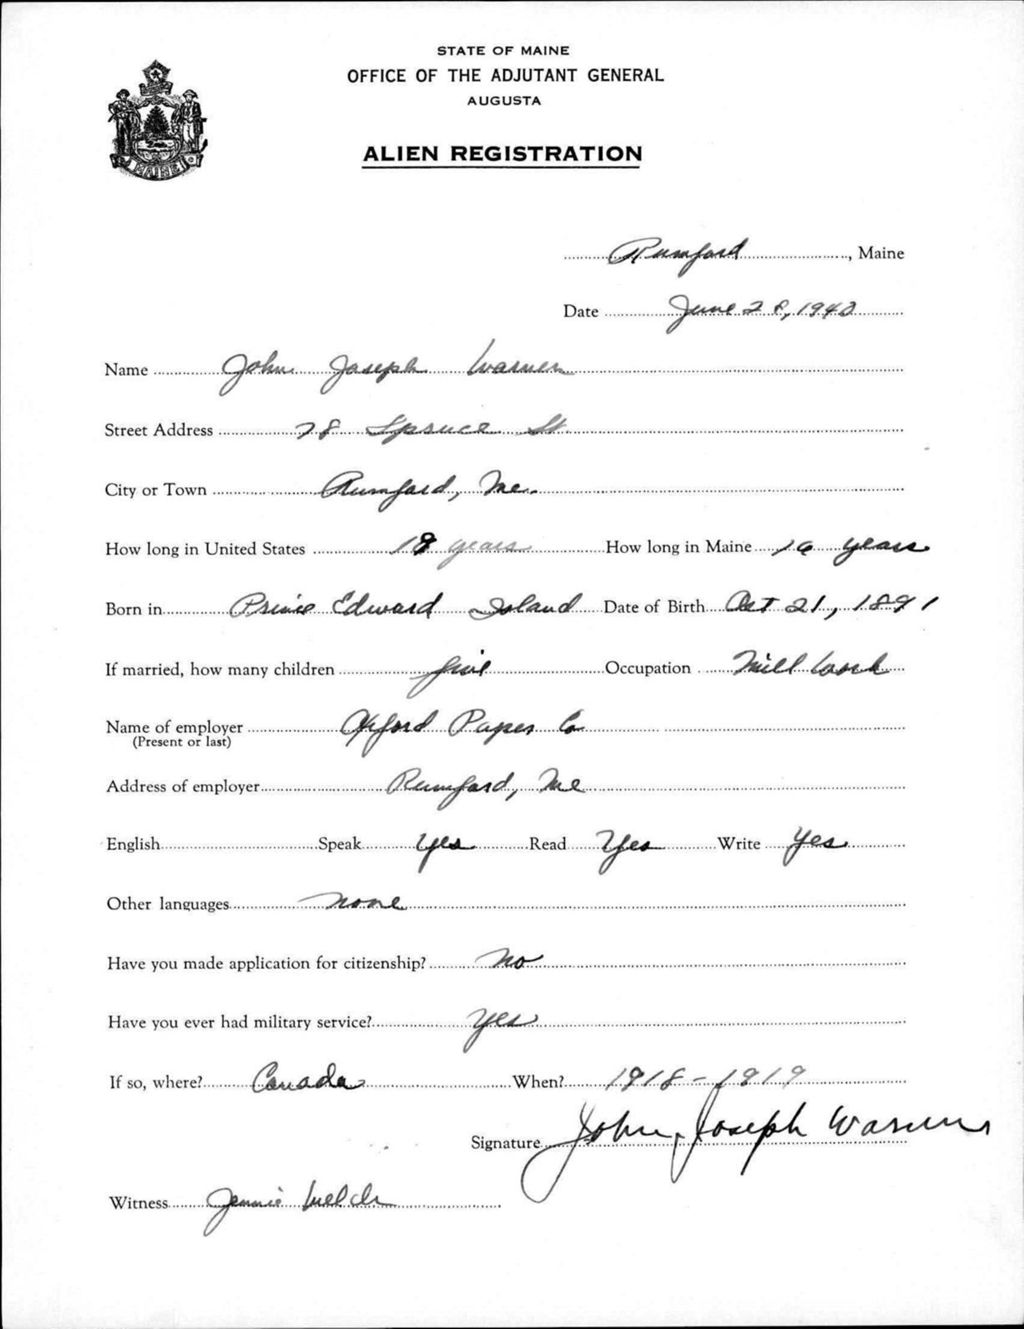 STATE OF MAINE
OFFICE OF THE ADJUTANT GENERAL
AUGUSTA
ALIEN REGISTRATION
MAINE
Rumford, Maine
Date June 28, 1940
Name John Joseph Warner
Street Address 78 Spruce St
City or Town Rumford, Me.
How long in United States 18 years How long in Maine 16 years
Born in Prince Edward Island Date of Birth Oct 21, 1891
If married, how many children five Occupation Mill Work
Name of employer Oxford Paper Co
(Present or last)
Address of employer Rumford, Me
English Speak Yes Read Yes Write Yes
Other languages none
Have you made application for citizenship? No
Have you ever had military service? Yes
If so, where? Canada When? 1918-1919
Signature John Joseph Warner
Witness Jennie Welch